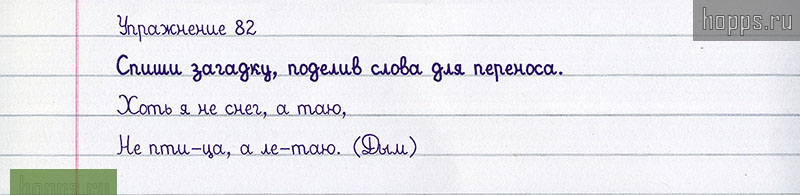 hopps.ru
Упражнение 82
Спиши загадку, поделив слова для переноса.
Хоть я не снег, а таю,
Не пти-ца, а ле-таю. (Дым)
hopps.ru